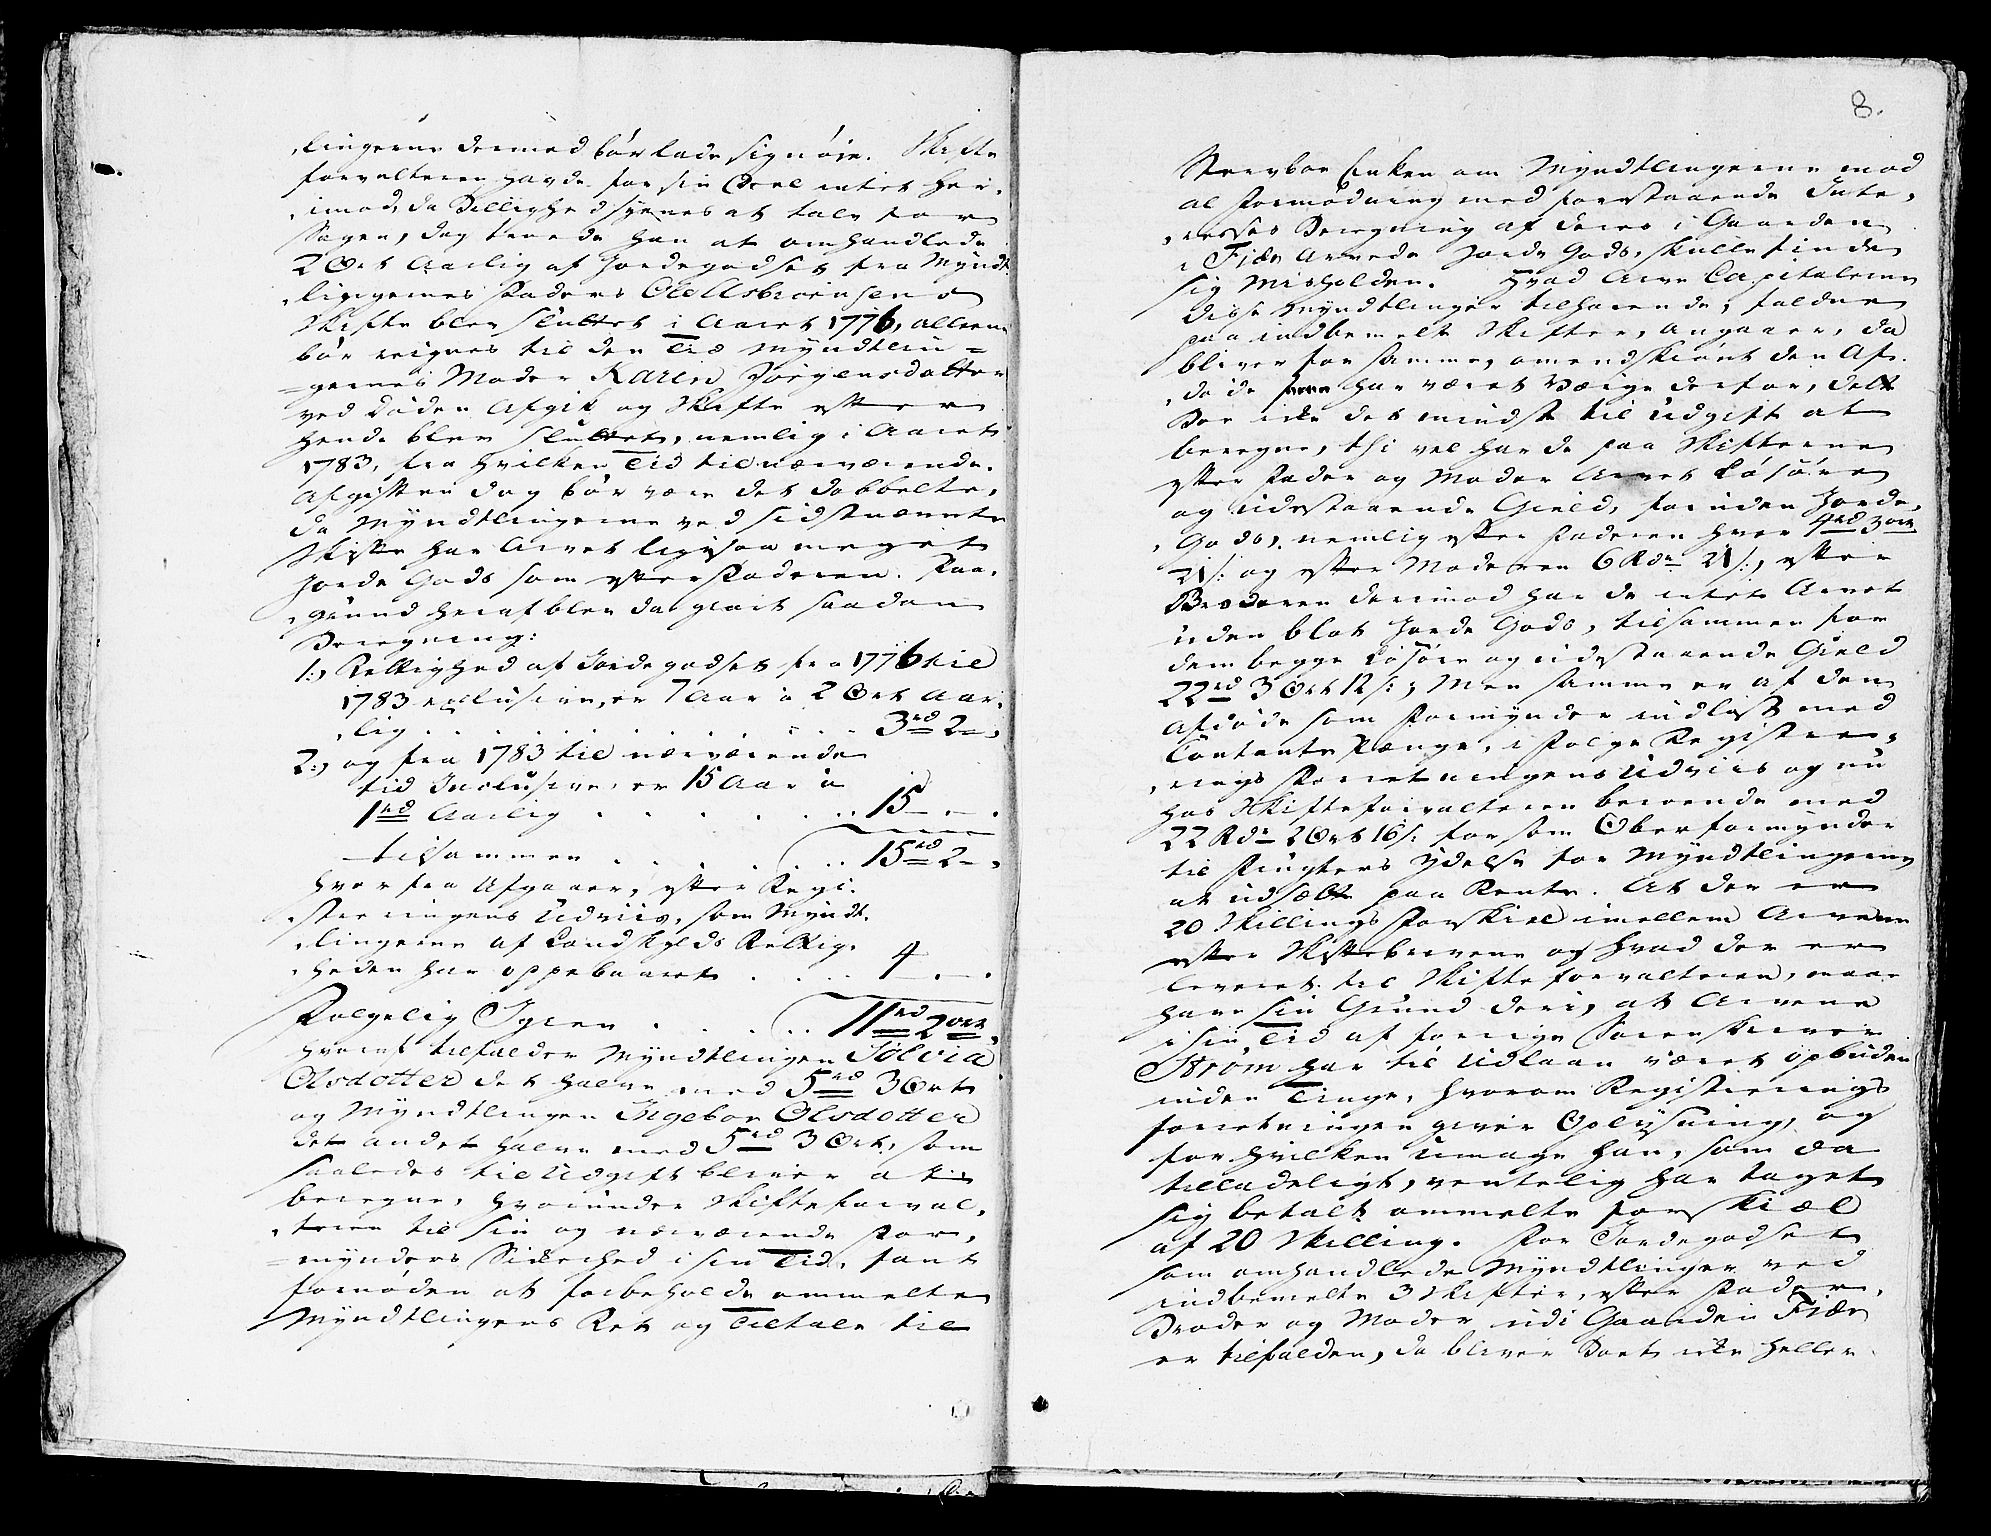 lingerne dermed bør lade sig nøie. Skifte
forvalteren havde for sin Deel intet her-
imod, da Billighed synes at tale for
Sagen, dog troede han at omhandlede
2 Ort Aarlig af Jordegodset fra Mÿndt
lingernes Faders Ole Asbiørnsens
Skifte blev sluttet i Aaret 1776, alleene
bør reignes til den Tid Mÿndtlin=
=gernes Moder Karen Jørgensdatter
ved Døden Afgik og Skifte efter
hende blev sluttet, nemlig i Aaret
1783, fra hvilken Tid til nærværende
Afgiften dog bør være det dobbelte,
da Mÿndtlingerne ved sidstnævnte
Skifte har Arvet ligesaa meget
Jorde Gods som efter Faderen. Paa
grund heraf blev da giort saadan
Beregning:
1:, Rettighed af Jordegodset fra 1776 til
1783 exclusive, er 7 Aar a 2 Ort Aar-
lig . . . . . . 3rd 2 -,
2:, og fra 1783 til nærværende
tid Inclusive, er 15 Aar a
1rd Aarlig . . . . . 15 - . -.
tilsammen . . . . . 15rd 2 -,
hvorfra Afgaaer, efter Regi-
streringens Udviis, som Mÿndt-
lingerne af Landskÿlds Rettig-
heden har oppebaaret . . . 4 . - .
Følgelig Igien . . . . 11rd 2ort,
hvoraf tilfalder Mÿndtlingen Sølvia
Olsdotter det halve med 5rd 3 Ort
og Mÿndtlingen Ingebor Olsdotter
det andet halve med 5rd 3 Ort, som
saaledes til Udgift bliver at
beregne, hvorunder Skifteforval-
teren til sin og nærværende For-
=mÿnders Sikerhed i sin Tid, fant
fornøden at forbeholde ommelte
Mÿndtlingers Ret og Tiltale til
8.
Stervboe Enken om Mÿndtlingerne mod
al Formodning med forestaaende Inte-
resses Beregning af deres i Gaarden
Fiær Arvede Jorde Gods, skulle finde
sig misholden. Hvad Arve Capitalerne
disse Mÿndtlinger tilhørende, faldne
paa indbemelte Skifter, angaaer, da
bliver for samme, omendskiønt den Af-
døde har været Værge derfor, dette
Boe ikke det mindste til Udgift at
beregne, thi vel har de paa Skifterne
efter Fader og Moder Arvet Løsøre
og udestaaende Gield, foruden Jorde,
Gods, nemlig efter Faderen hver 4rd 3ort
21 s: og efter Moderen 6 Rdr 21 s:, efter
Broderen derimod har de intet Arvet
uden blot Jorde Gods, tilsammen for
dem begge Løsøre og udestaaende Gield
22rd 3 Ort 12 s:, Men samme er af den
Afdøde som Formÿnder indløst med
Contante Penge, i Følge Registre-
rings Forretningens Udviis og nu
hos Skifteforvalteren beroende med
22 Rdr 2 Ort 16 s: for som Oberformÿnder
til Frugters Ydelse for Mÿndtlingerne
at udsætte paa Rente. At der er
20 Skillings Forskiel imellem Arvene
efter Skiftebrevene og hvad der er
leveret til Skifteforvalteren, maae
have sin Grund deri, at Arvene
i sin Tid af forrige Sorenskriver
Strøm har til Udlaan været opbuden
inden Tinge, hvorom Registrerings
forretningen giver Oplÿsning, og
for hvilken Umage han, som da
tilladeligt, ventelig har taget
sig betalt ommelte forskiæl
af 20 Skilling. For Jordegodset
som omhandlede Mÿndtlinger ved
indbemelte 3 Skifter, efter Fader,
Broder og Moder udi Gaarden Fiær
er tilfalden, da bliver Boet ikke heller